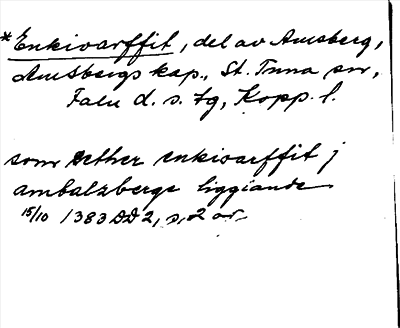 *Enkivarffit, del av Amsberg,
Amsbergs kap., St. Tuna sn,
Falu d. s. tg, Kopp. l.
som Hether enkivarffit j
ambalzberge liggiande
15/10 1383 DD 2, s. 2 or